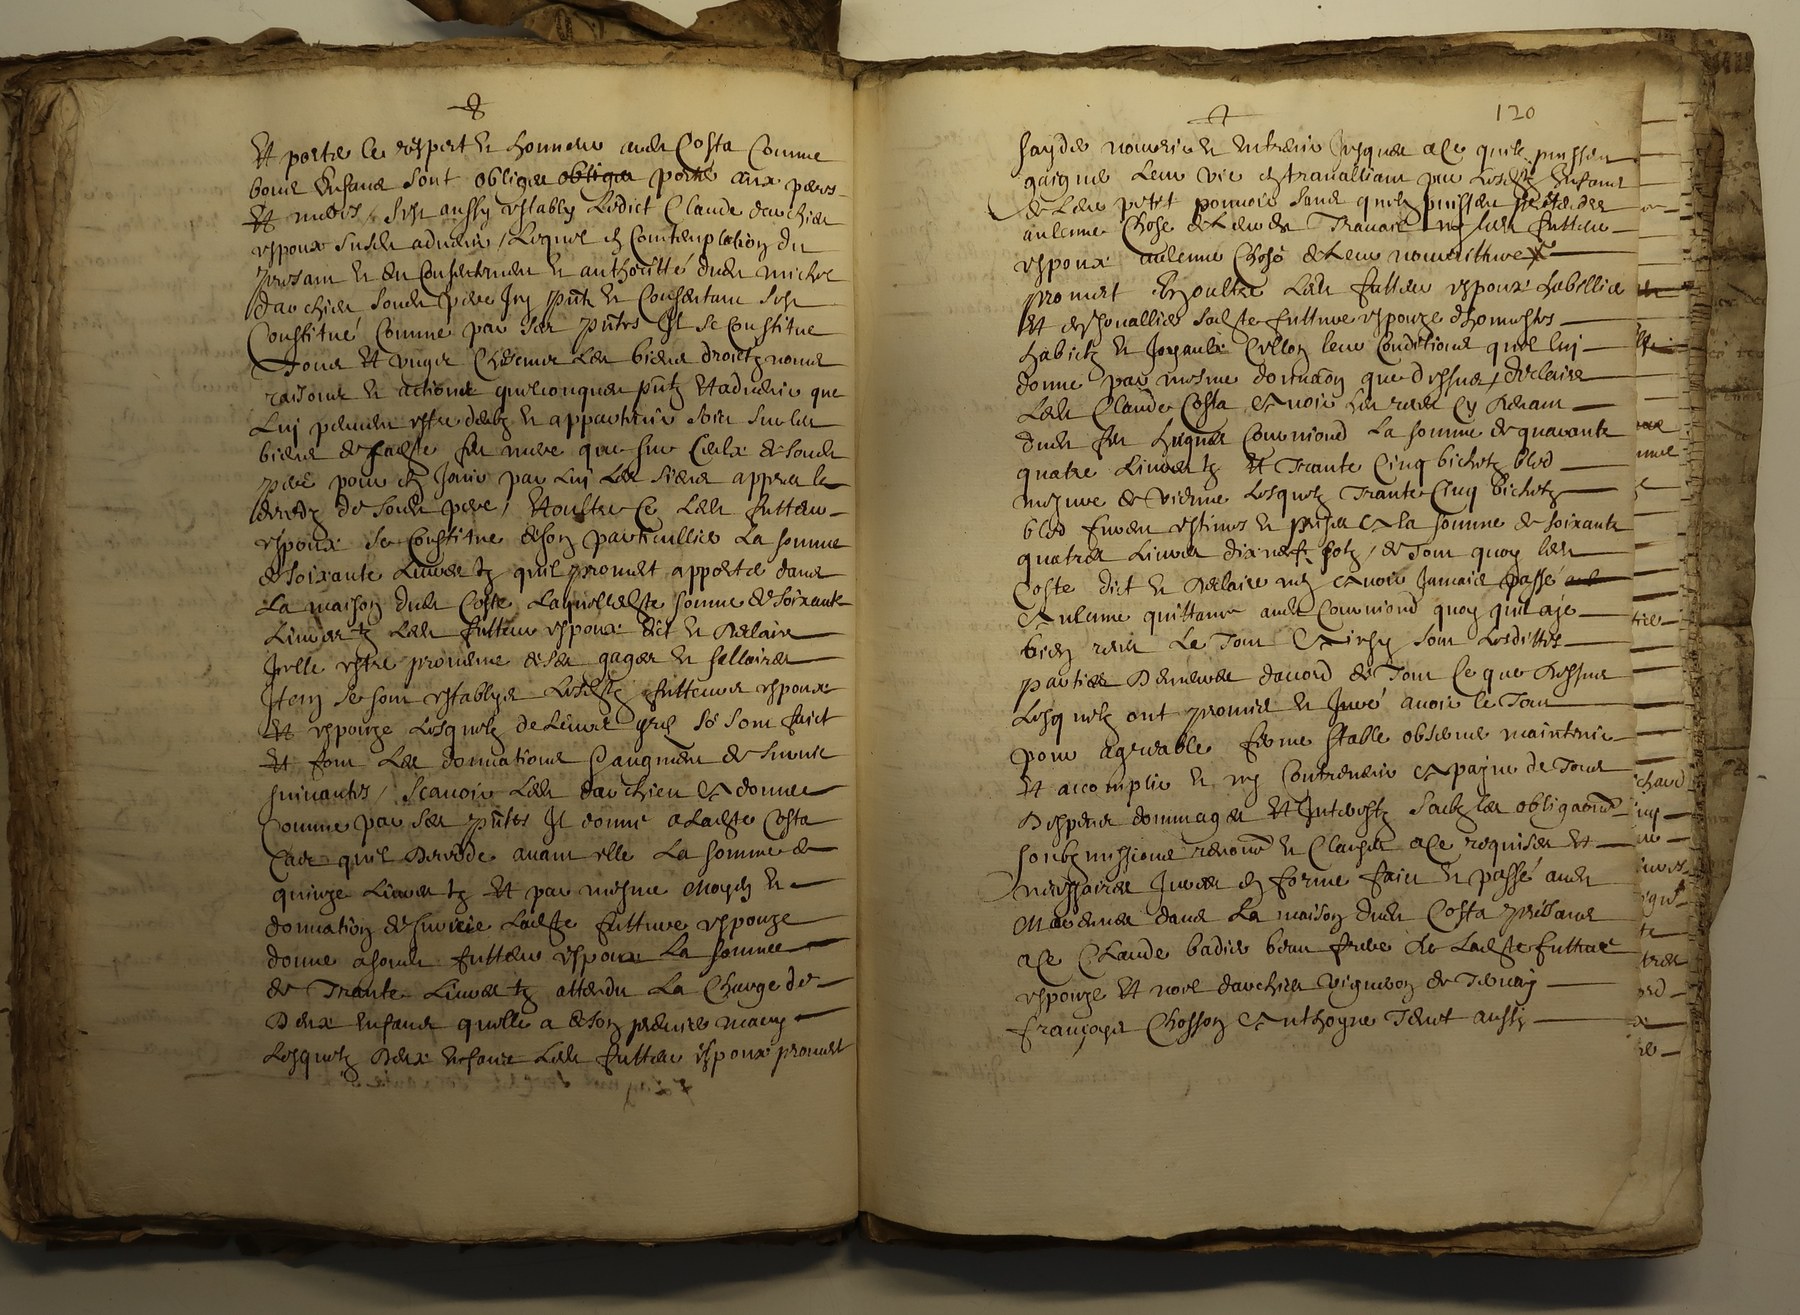 Et porter le respect et honneur audit Costa Comme
bons Enfans sont obliges obliges porter aux peres
Et meres / S'est aussy estably Ledict Claude darchier
espoux susdit advenir / Lequel en Contemplation du
presant et du Consentement et authoritté dudit michel
darchier sondit pere Icy pnt et Consentant s'est
Constitué Comme par ses pntes Il se Constitue
Tous Et ungs Chescuns Les biens droictz noms
raisons et actions quelconques pntz Et advenir que
Luy peuvent estre deubz et appartenir soit sur les
biens de ladte feu mere que sur Ceulx de sondit
pere pour en Jouir par Luy Les siens appres le
decedz de sondit pere / Et oultre Ce Ledit futteur
espoux se Constitue de son particullier La somme
de soixante Livres tz quil promet apporter dans
La maison dudit Coste Laquelle dte somme de soixante
Livres tz Ledit futteur espoux dict et Declaire
Icelle estre provenue de ses gages et sallaires
Item se sont establys Lesdtz futteurs espoux
Et espouze Lesquelz de Leur gré se sont faict
Et font Les donnations d'augment de survie
suivantes / Scavoir Ledit darchier A donner
Comme par ses pntes Il donne a Ladte Costa
Cas quil Decede avant elle La somme de
quinze Livres tz Et par mesme moyen et
donnation de survie Ladte futture espouze
donne a sondit futteur espoux La somme
de Trante Livres tz attendu La Charge de
Deux enfans quelle a de son premier mary
Lesquelz Deux enfans Ledit futteur espoux promet
120
nourrir et entretenir Jusques a Ce quilz puissent
gaigner Leur vie en travalliant par Lesdtz enfans
de Leur petit pouvoir sans quilz puissent
aulcune Chose de Leurdit Travail ny Ledit futteur
espoux aulcune Chose de Leur nourriture
promet En oultre Ledit futteur espoux habillier
Et Joyallier sadte futture espouze d'honnestes
habictz et Joyaulx Cellon leur Conditions quil luy
donne par mesme donnaon que dessus / Declaire
Ledit Claude Costa Avoir Cy Devant
dudit feu Couvriond La somme de quarante
quatre Livres tz Et Trante Cinq bichetz bled
mesure de Vienne Lesquelz Trante Cinq bichetz
bled furent estimes et prises A la somme de soixante
quatre Livres dix neuf solz / de Tout quoy ledit
Coste dict et Declaire ny Avoir Jamais passé
Aulcune quittance audit Couvriond quoy quil aye
bien receu Le Tout Ainsy sont Lesdittes
parties Demeures daccord de Tout Ce que Dessus
Lesquelz ont promis et Juré avoir le Tout
pour agreable ferme stable observer maintenir
Et accomplir et ny Contrevenir A payne de Tous
Despens dommages Et Interestz soubz les obligaons
soubzmissions renons et Clauses a Ce requises Et
necessaires Jurees en forme faict et passé audit
dans La maison dudit Costa presans
a Ce Claude badier beau frere de Ladte futture
espouze Et noel darchier vigneron de
françoys Chosson Anthoyne aussy